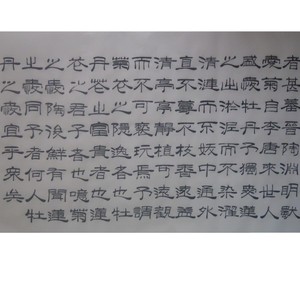 者甚蕃晉陶淵明獨
愛菊自李唐來世人
盛愛牡丹予獨愛蓮
之出淤泥而不染濯
清漣而不妖中通外
直不蔓不枝香遠益
清亭亭淨植可遠觀
而不可褻玩焉予謂
菊花之隱逸者也牡
丹花之富貴者也蓮
花之君子者也噫菊
之愛陶後鮮有聞蓮
之愛同予者何人牡
丹之愛宜乎眾矣